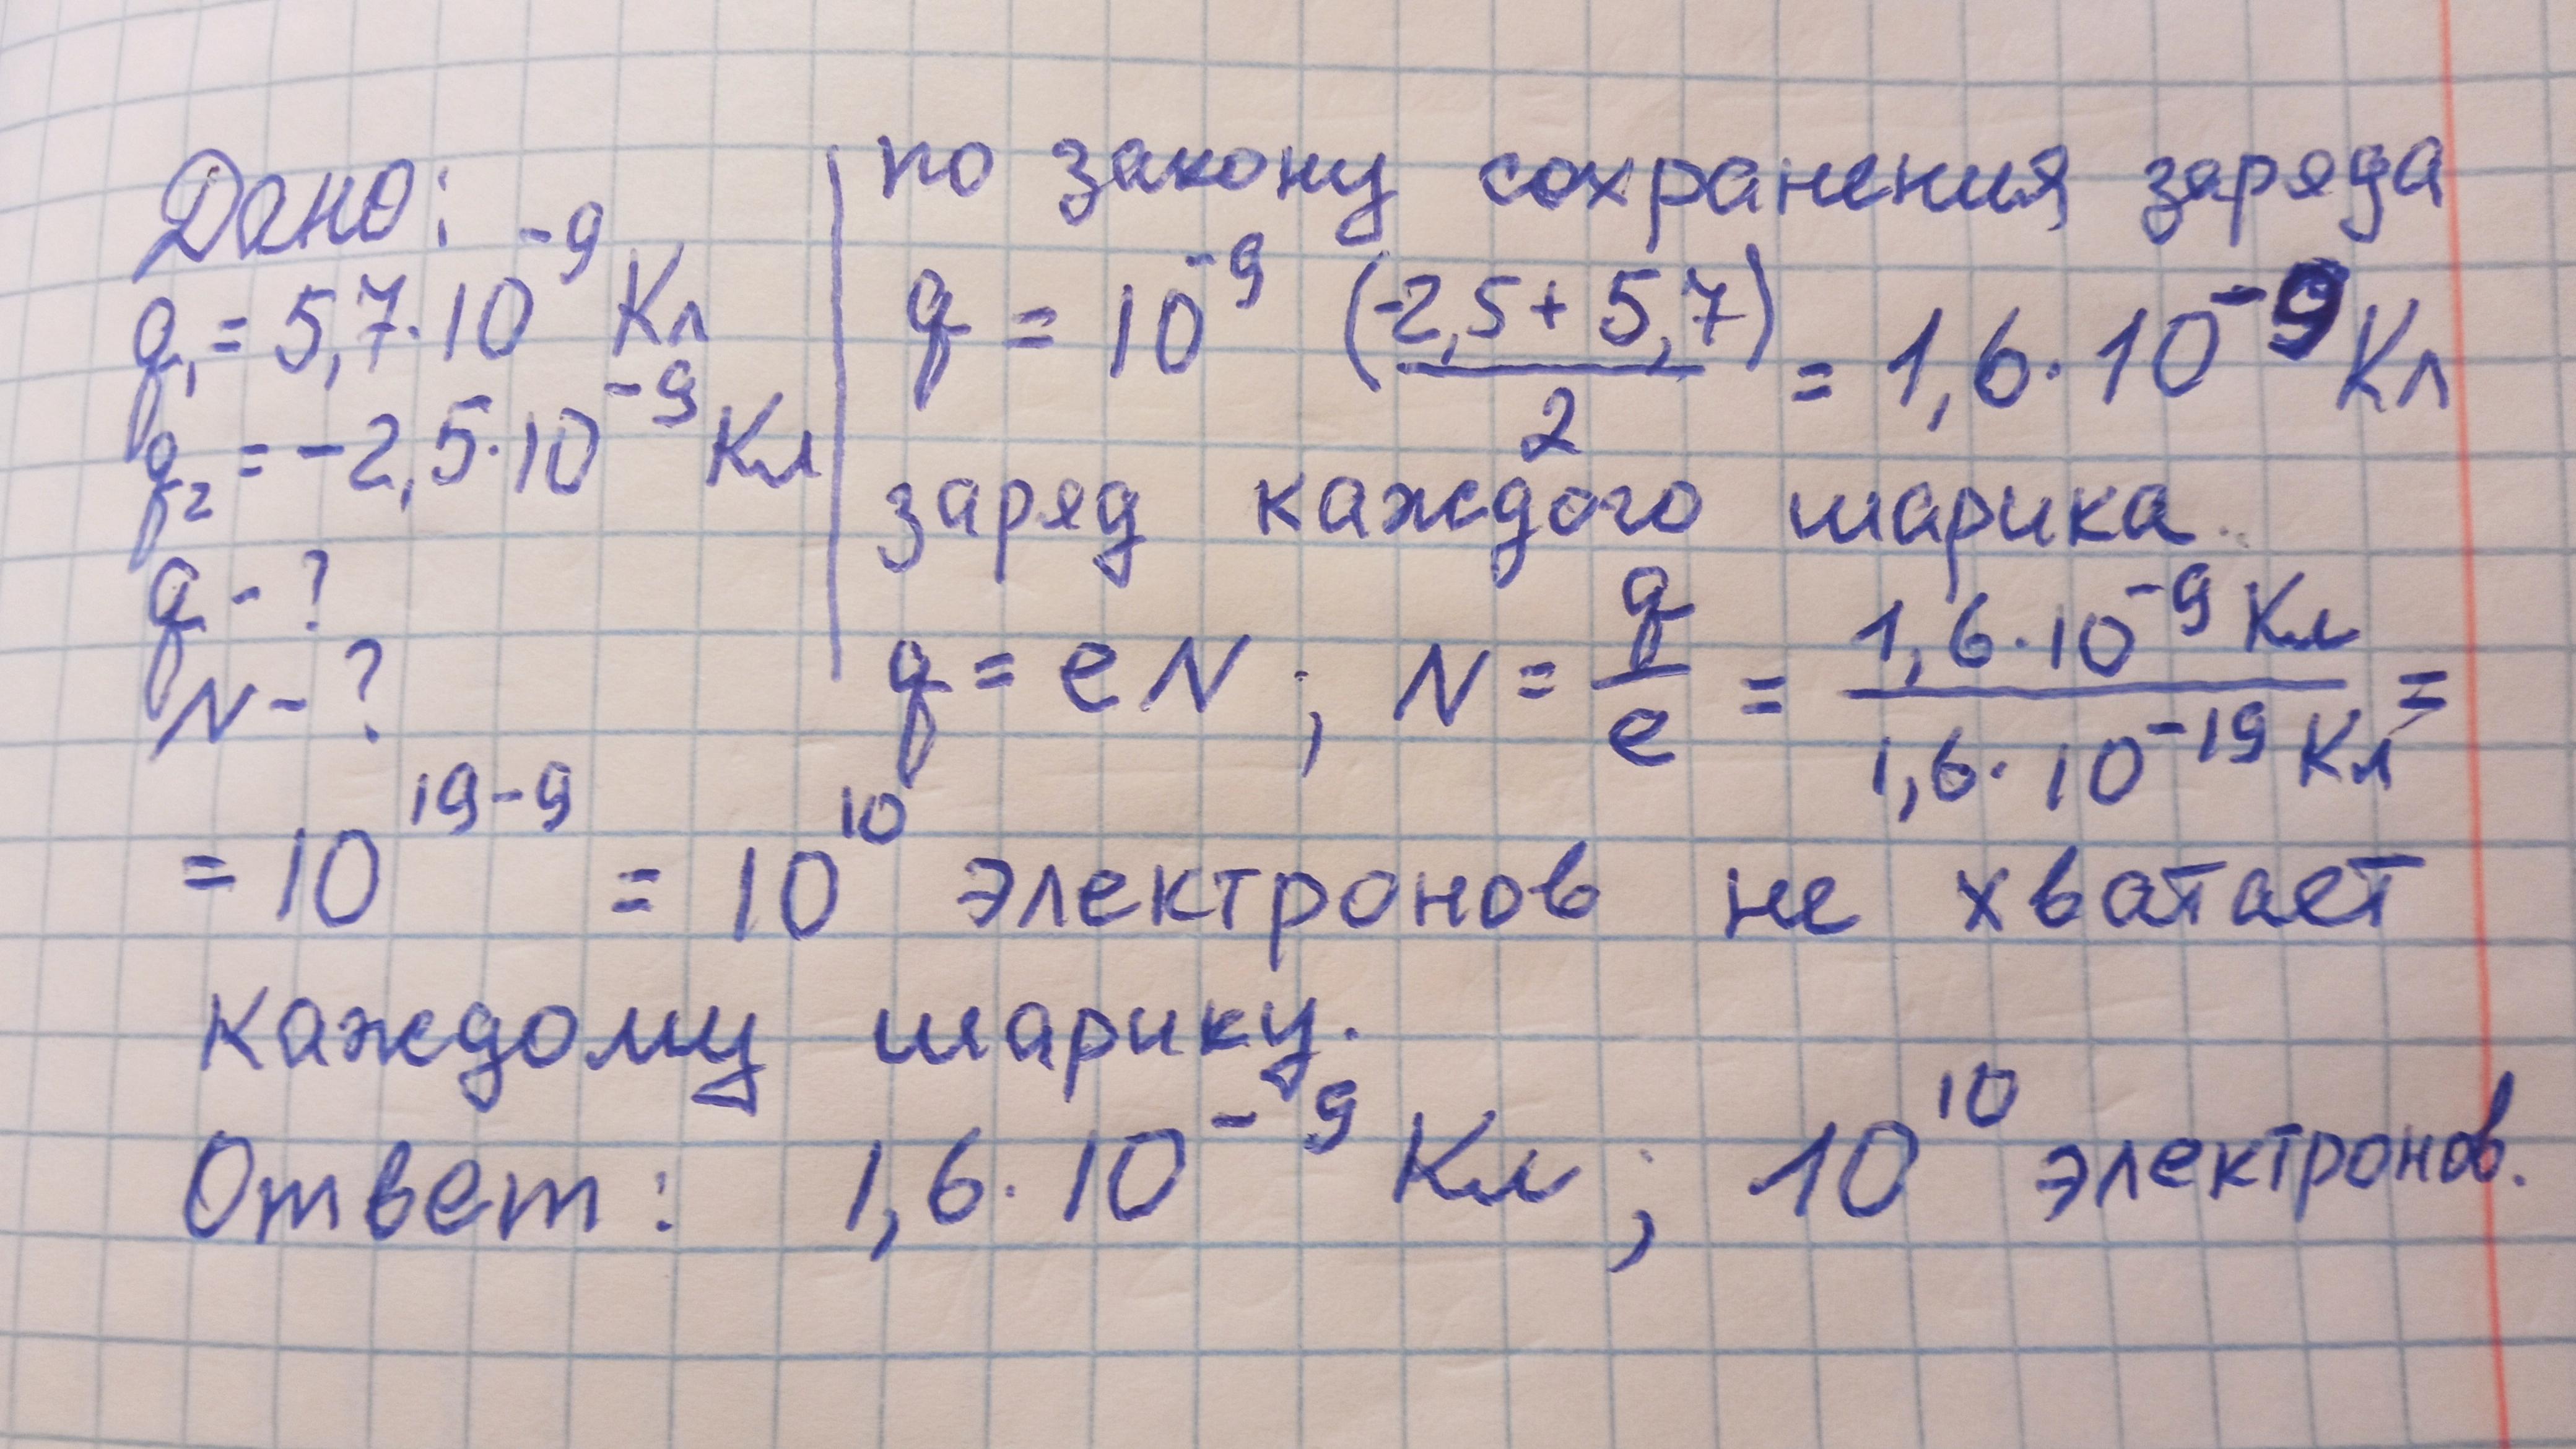 Дано:
q₁ = 5,7·10⁻⁹ Кл
q₂ = -2,5·10⁻⁹ Кл
q - ?
N - ?
по закону сохранения заряда
q = 10⁻⁹ (-2,5 + 5,7)/2 = 1,6·10⁻⁹ Кл
заряд каждого шарика.
q = eN ; N = q/e = 1,6·10⁻⁹ Кл / 1,6·10⁻¹⁹ Кл =
= 10¹⁹⁻⁹ = 10¹⁰ электронов не хватает
каждому шарику.
Ответ: 1,6·10⁻⁹ Кл ; 10¹⁰ электронов.